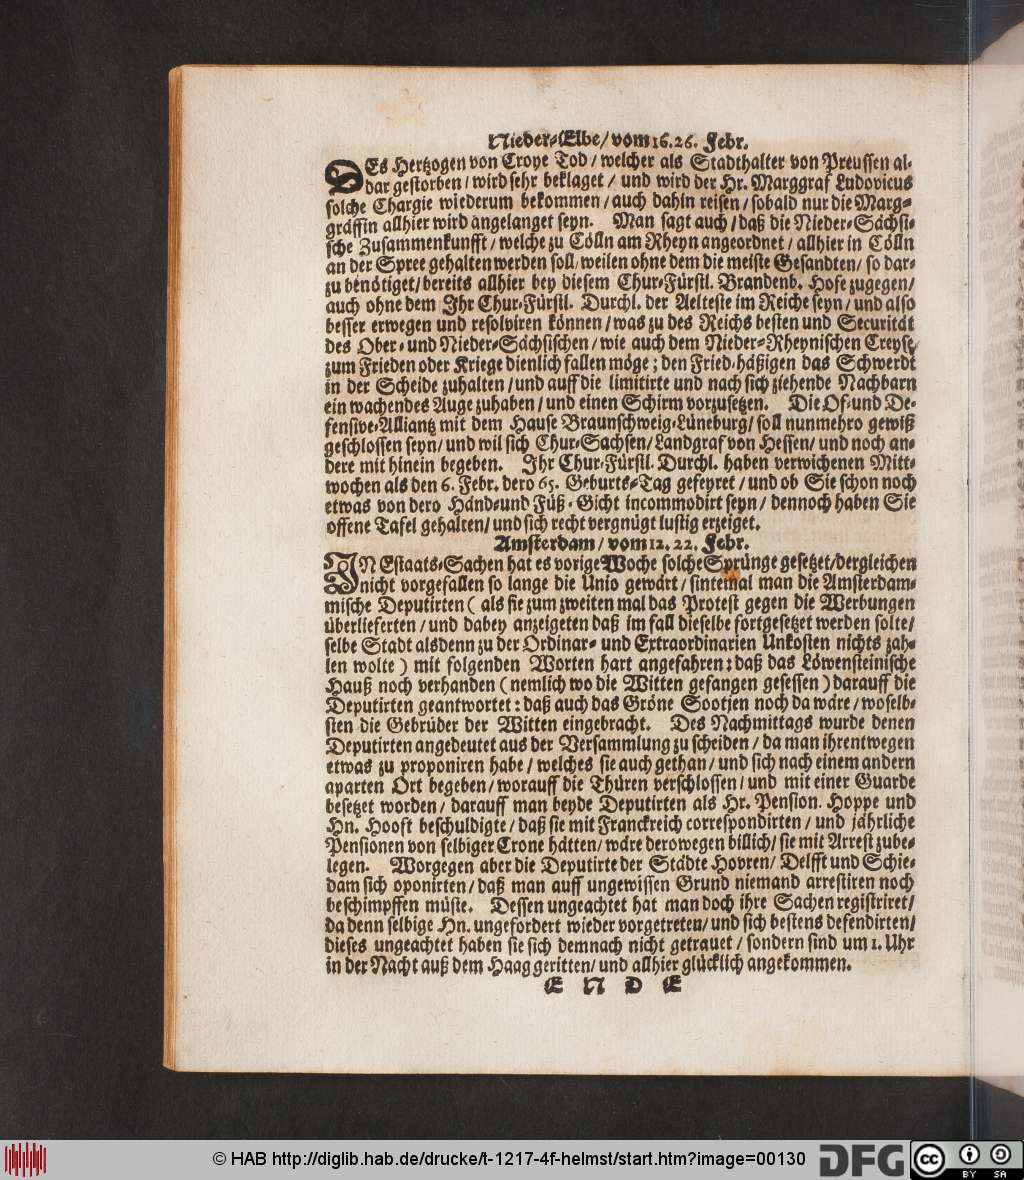 Nieder-Elbe/ vom 16. 26. Febr.
DEs Hertzogen von Croye Tod/ welcher als Stadthalter von Preussen al-
dar gestorben/ wird sehr beklaget/ und wird der Hr. Marggraf Ludovicus
solche Chargie wiederum bekommen/ auch dahin reisen/ sobald nur die Marg-
gräffin allhier wird angelanget seyn. Man sagt auch/ daß die Nieder-Sächsi-
sche Zusammenkunfft/ welche zu Cölln am Rheyn angeordnet/ allhier in Cölln
an der Spree gehalten werden soll/ weilen ohne dem die meiste Gesandten/ so dar-
zu benötiget/ bereits allhier bey diesem Chur-Fürstl. Brandenb. Hofe zugegen/
auch ohne dem Ihr Chur-Fürstl. Durchl. der Aelteste im Reiche seyn/ und also
besser erwegen und resolviren können/ was zu des Reichs besten und Securität
des Ober- und Nieder-Sächsischen/ wie auch dem Nieder-Rheynischen Creyse/
zum Frieden oder Kriege dienlich fallen möge; den Fried-häßigen das Schwerdt
in der Scheide zuhalten/ und auff die limitirte und nach sich ziehende Nachbarn
ein wachendes Auge zuhaben/ und einen Schirm vorzusetzen. Die Of- und De-
fensive-Alliantz mit dem Hause Braunschweig-Lüneburg/ soll nunmehro gewiß
geschlossen seyn/ und wil sich Chur-Sachsen/ Landgraf von Hessen/ und noch an-
dere mit hinein begeben. Ihr Chur-Fürstl. Durchl. haben verwichenen Mitt-
wochen als den 6. Febr. dero 65. Geburts-Tag gefeyret/ und ob Sie schon noch
etwas von dero Händ- und Füß-Gicht incommodirt seyn/ dennoch haben Sie
offene Tafel gehalten/ und sich recht vergnügt lustig erzeiget.
Amsterdam/ vom 12. 22. Febr.
IN Estaats-Sachen hat es vorige Woche solche Sprünge gesetzet/ dergleichen
nicht vorgefallen so lange die Unio gewärt/ sintemal man die Amsterdam-
mische Deputirten (als sie zum zweiten mal das Protest gegen die Werbungen
überlieferten/ und dabey anzeigeten daß im fall dieselbe fortgesetzet werden solte/
selbe Stadt alsdenn zu der Ordinar- und Extraordinarien Unkosten nichts zah-
len wolte) mit folgenden Worten hart angefahren: daß das Löwensteinische
Hauß noch verhanden (nemlich wo die Witten gefangen gesessen) darauff die
Deputirten geantwortet: daß auch das Gröne Sootjen noch da wäre/ woselb-
sten die Gebrüder der Witten eingebracht. Des Nachmittags wurde denen
Deputirten angedeutet aus der Versammlung zu scheiden/ da man ihrentwegen
etwas zu proponiren habe/ welches sie auch gethan/ und sich nach einem andern
aparten Ort begeben/ worauff die Thüren verschlossen/ und mit einer Guarde
besetzet worden/ darauff man beyde Deputirten als Hr. Pension. Hoppe und
Hn. Hooft beschuldigte/ daß sie mit Franckreich correspondirten/ und jährliche
Pensionen von selbiger Crone hätten/ wäre derowegen billich/ sie mit Arrest zube-
legen. Worgegen aber die Deputirte der Städte Hovren/ Delfft und Schie-
dam sich oponirten/ daß man auff ungewissen Grund niemand arrestiren noch
beschimpffen müste. Dessen ungeachtet hat man doch ihre Sachen registriret/
da denn selbige Hn. ungefordert wieder vorgetreten/ und sich bestens defendirten/
dieses ungeachtet haben sie sich demnach nicht getrauet/ sondern sind um 1. Uhr
in der Nacht auß dem Haag geritten/ und allhier glücklich angekommen.
E N D E
© HAB http://diglib.hab.de/drucke/t-1217-4f-helmst/start.htm?image=00130
DFG
cc BY SA